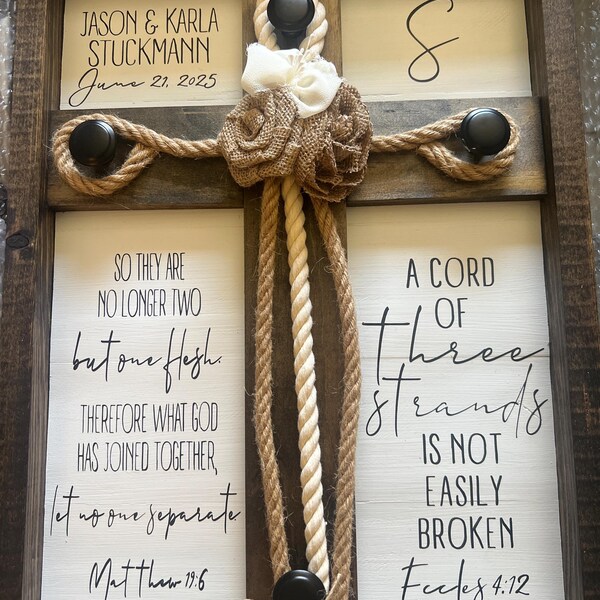 JASON & KARLA
STUCKMANN
June 21, 2025
S
SO THEY ARE
NO LONGER TWO
but one flesh.
THEREFORE WHAT GOD
HAS JOINED TOGETHER,
let no one separate.
Matthew 19:6
A CORD
OF
three
strands
IS NOT
EASILY
BROKEN
Eccles 4:12